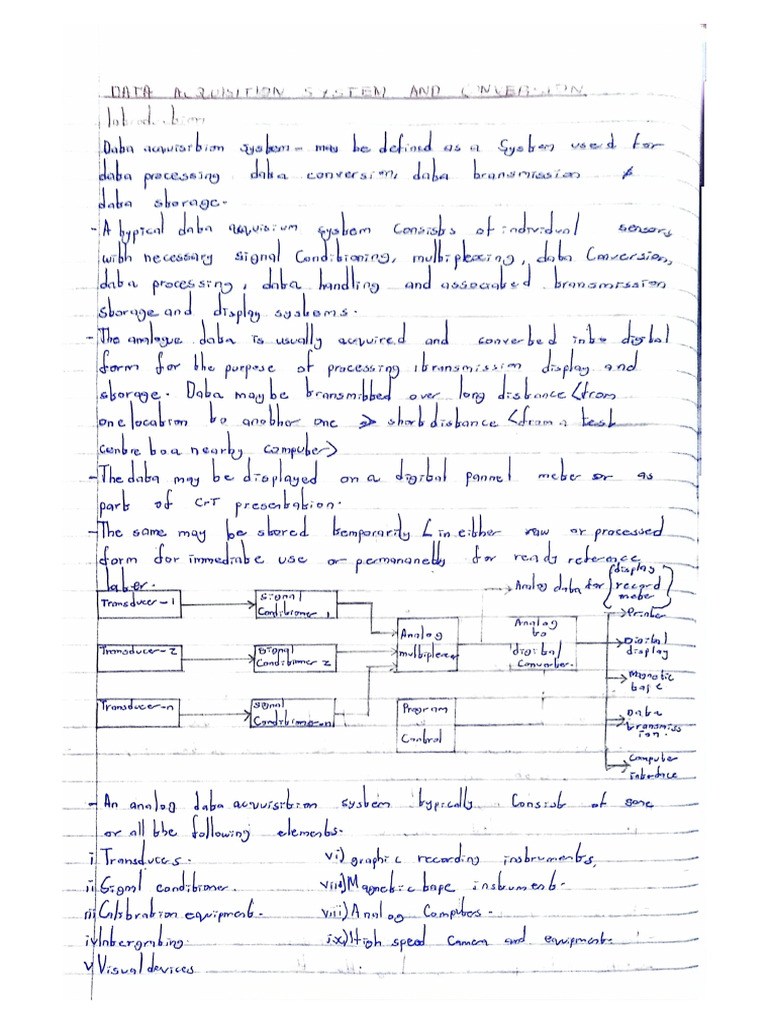 DATA ACQUISITION SYSTEM AND CONVERSION
Introduction
Data acquisition system - may be defined as a System used for
data processing data conversion, data transmission &
data storage.
- A typical data acquisium system consists of individual sensors
with necessary signal Conditioning, multiplexing, data Conversion,
data processing, data handling and associated transmission
storage and display systems.
- The analogue data is usually acquired and converted into digital
form for the purpose of processing, transmission display and
storage. Data may be transmitted over long distance (from
one location to another one short distance (from a test
centre to a nearby computer)
- The data may be displayed on a digital pannel meter or as
part of CRT presentation.
- The same may be stored temporarily (in either raw or processed
form for immediate use or permanently for ready reference
later.
Analog data for (display
record
meter)
Transducer-1
Signal
Conditioner 1
Transducer-2
Signal
Conditioner 2
Transducer-n
Signal
Conditioner-n
Analog
multiplexer
Program
Control
Analog
to
digital
Converter.
Printer
Digital
display
Magnetic
tape
Data
transmiss
ion.
Computer
interface
- An analog data acquisition system typically Consist of some
or all the following elements.
i Transducers.
ii Signal conditioner.
iii Calibration equipment.
iv Intergrating.
v Visual devices
vi) graphic recording instruments,
vii) Magnetic tape instrument.
viii) Analog Computers.
ix) High speed camera and equipment.